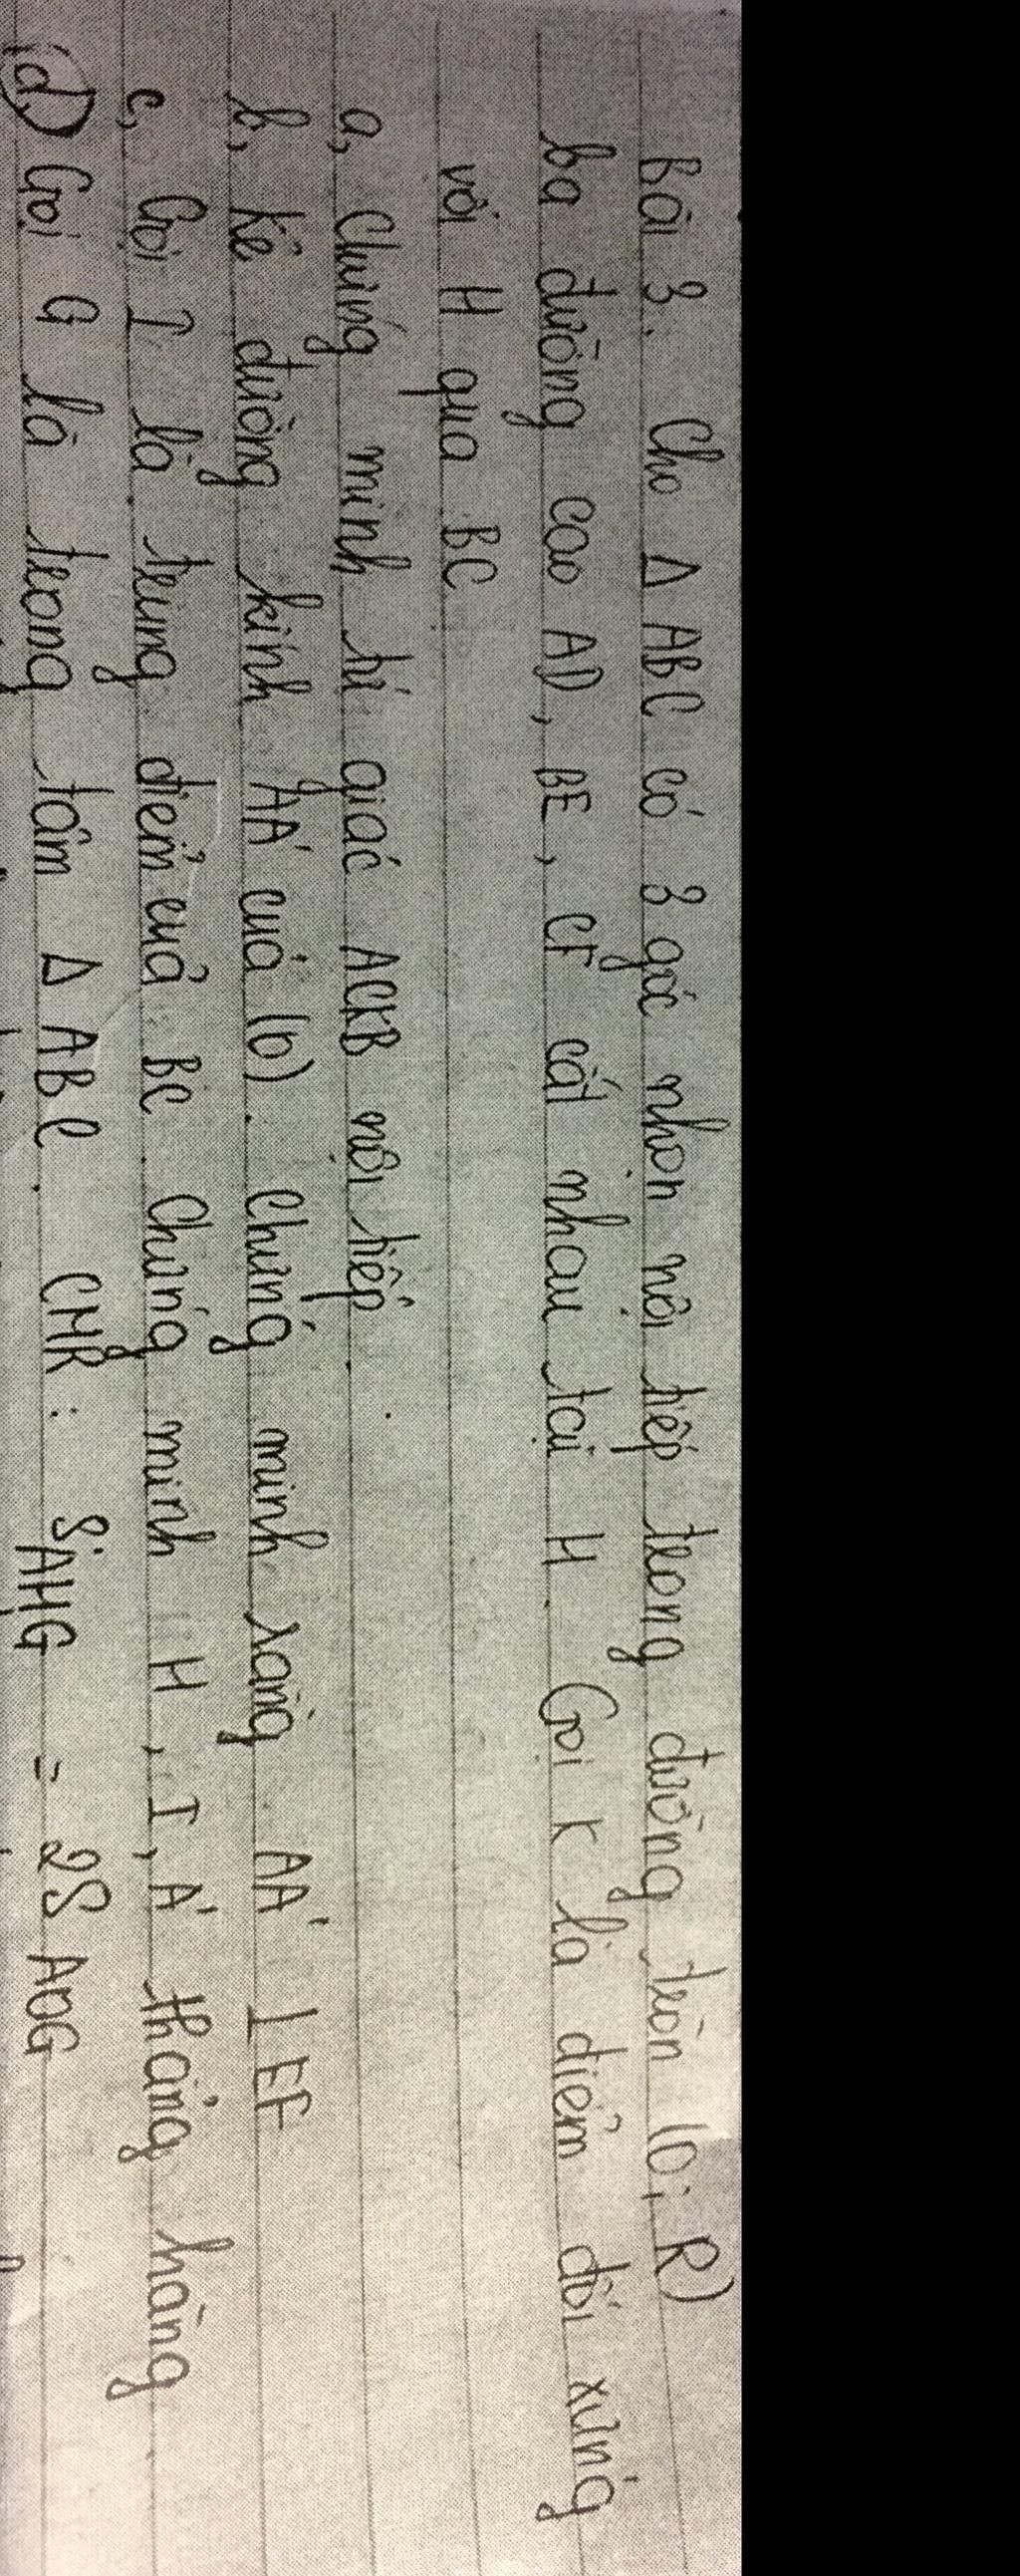 Bài 3. Cho Δ ABC có 3 góc nhọn nội tiếp trong đường tròn (O; R)
ba đường cao AD, BE, CF cắt nhau tại H. Gọi K là điểm đối xứng
với H qua BC
a, Chứng minh tứ giác ACKB nội tiếp.
b, Kẻ đường kính AA' của (O). Chứng minh rằng AA' ⊥ EF
c, Gọi I là trung điểm của BC. Chứng minh H, I, A' thẳng hàng.
d) Gọi G là trong tâm Δ ABC. CMR: SAHG = 2SAOG